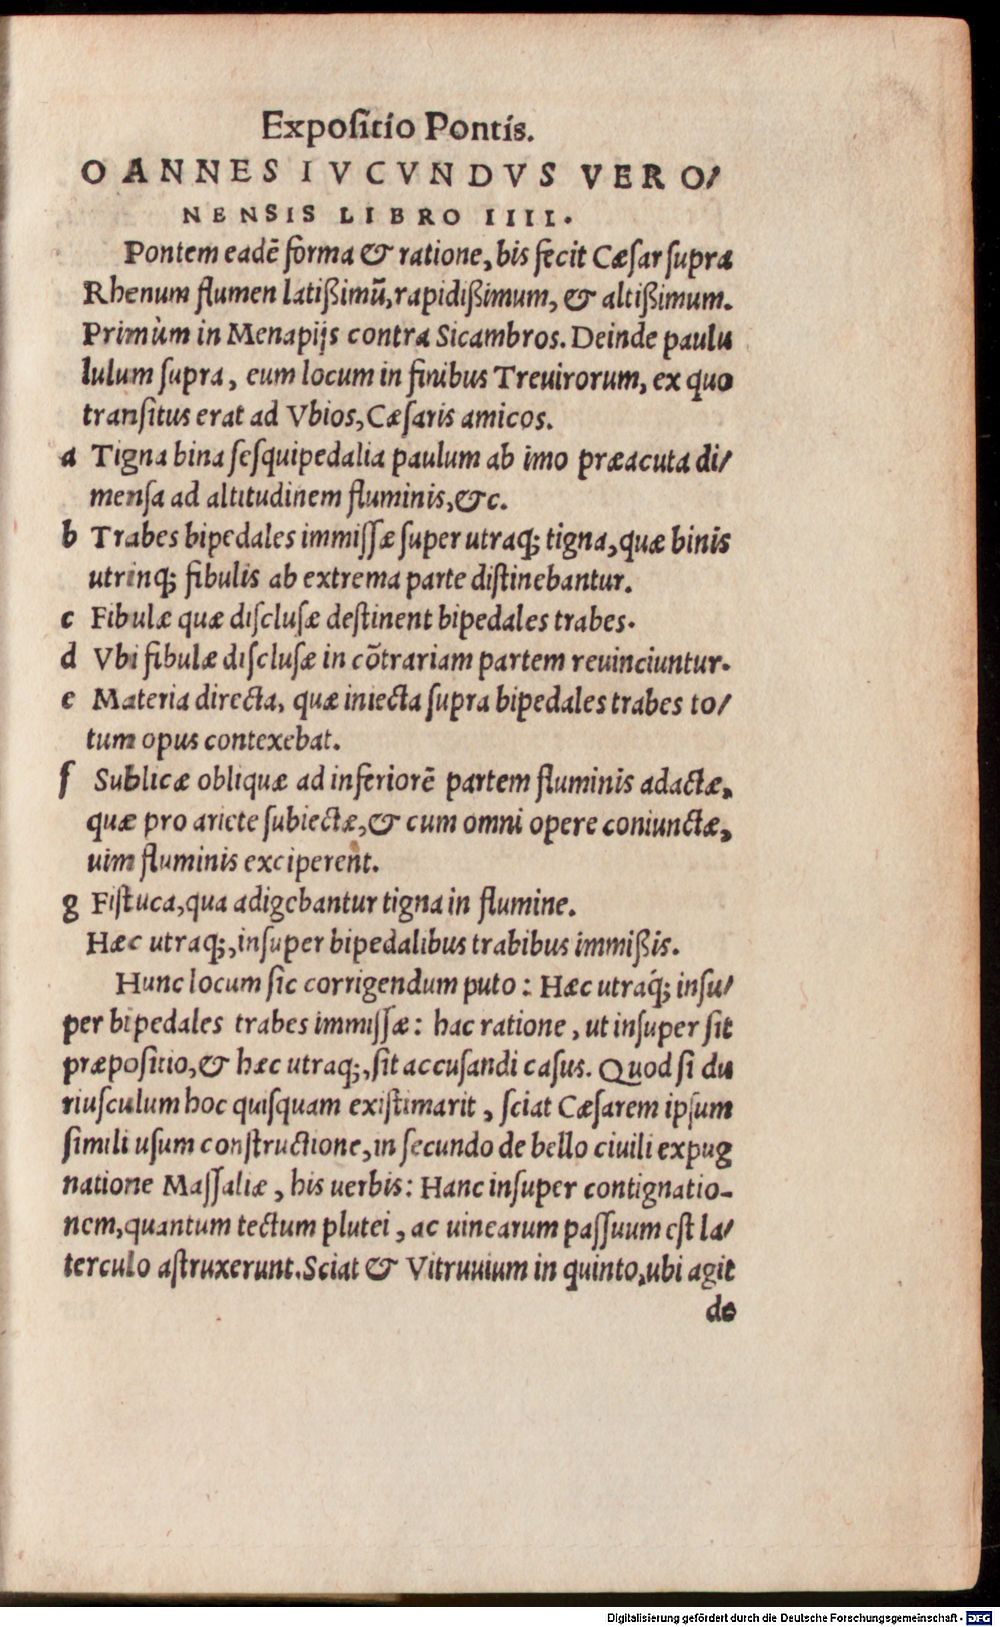 Expoſitio Pontis.
O ANNES IVCVNDVS VERO/
NENSIS LIBRO IIII.
Pontem eadē forma & ratione, bis fecit Cæſar ſupra
Rhenum flumen latißimū, rapidißimum, & altißimum.
Primùm in Menapijs contra Sicambros. Deinde paulu
lulum ſupra, eum locum in finibus Treuirorum, ex quo
tranſitus erat ad Vbios, Cæſaris amicos.
a Tigna bina ſeſquipedalia paulum ab imo præacuta di/
menſa ad altitudinem fluminis, &c.
b Trabes bipedales immiſſæ ſuper utraq; tigna, quæ binis
utrinq; fibulis ab extrema parte diſtinebantur.
c Fibulæ quæ diſcluſæ deſtinent bipedales trabes.
d Vbi fibulæ diſcluſæ in cōtrariam partem reuinciuntur.
e Materia directa, quæ iniecta ſupra bipedales trabes to/
tum opus contexebat.
f Sublicæ obliquæ ad inferiorē partem fluminis adactæ,
quæ pro ariete ſubiectæ, & cum omni opere coniunctæ,
uim fluminis exciperent.
g Fiſtuca, qua adigebantur tigna in flumine.
Hæc utraq;, inſuper bipedalibus trabibus immißis.
Hunc locum ſic corrigendum puto: Hæc utraq́; inſu/
per bipedales trabes immiſſæ: hac ratione, ut inſuper ſit
præpoſitio, & hæc utraq;, ſit accuſandi caſus. Quod ſi du
riuſculum hoc quiſquam exiſtimarit, ſciat Cæſarem ipſum
ſimili uſum conſtructione, in ſecundo de bello ciuili expug
natione Maſſaliæ, his uerbis: Hanc inſuper contignatio-
nem, quantum tectum plutei, ac uinearum paſſuum eſt la/
terculo aſtruxerunt. Sciat & Vitruuium in quinto, ubi agit
de
Digitalisierung gefördert durch die Deutsche Forschungsgemeinschaft - DFG